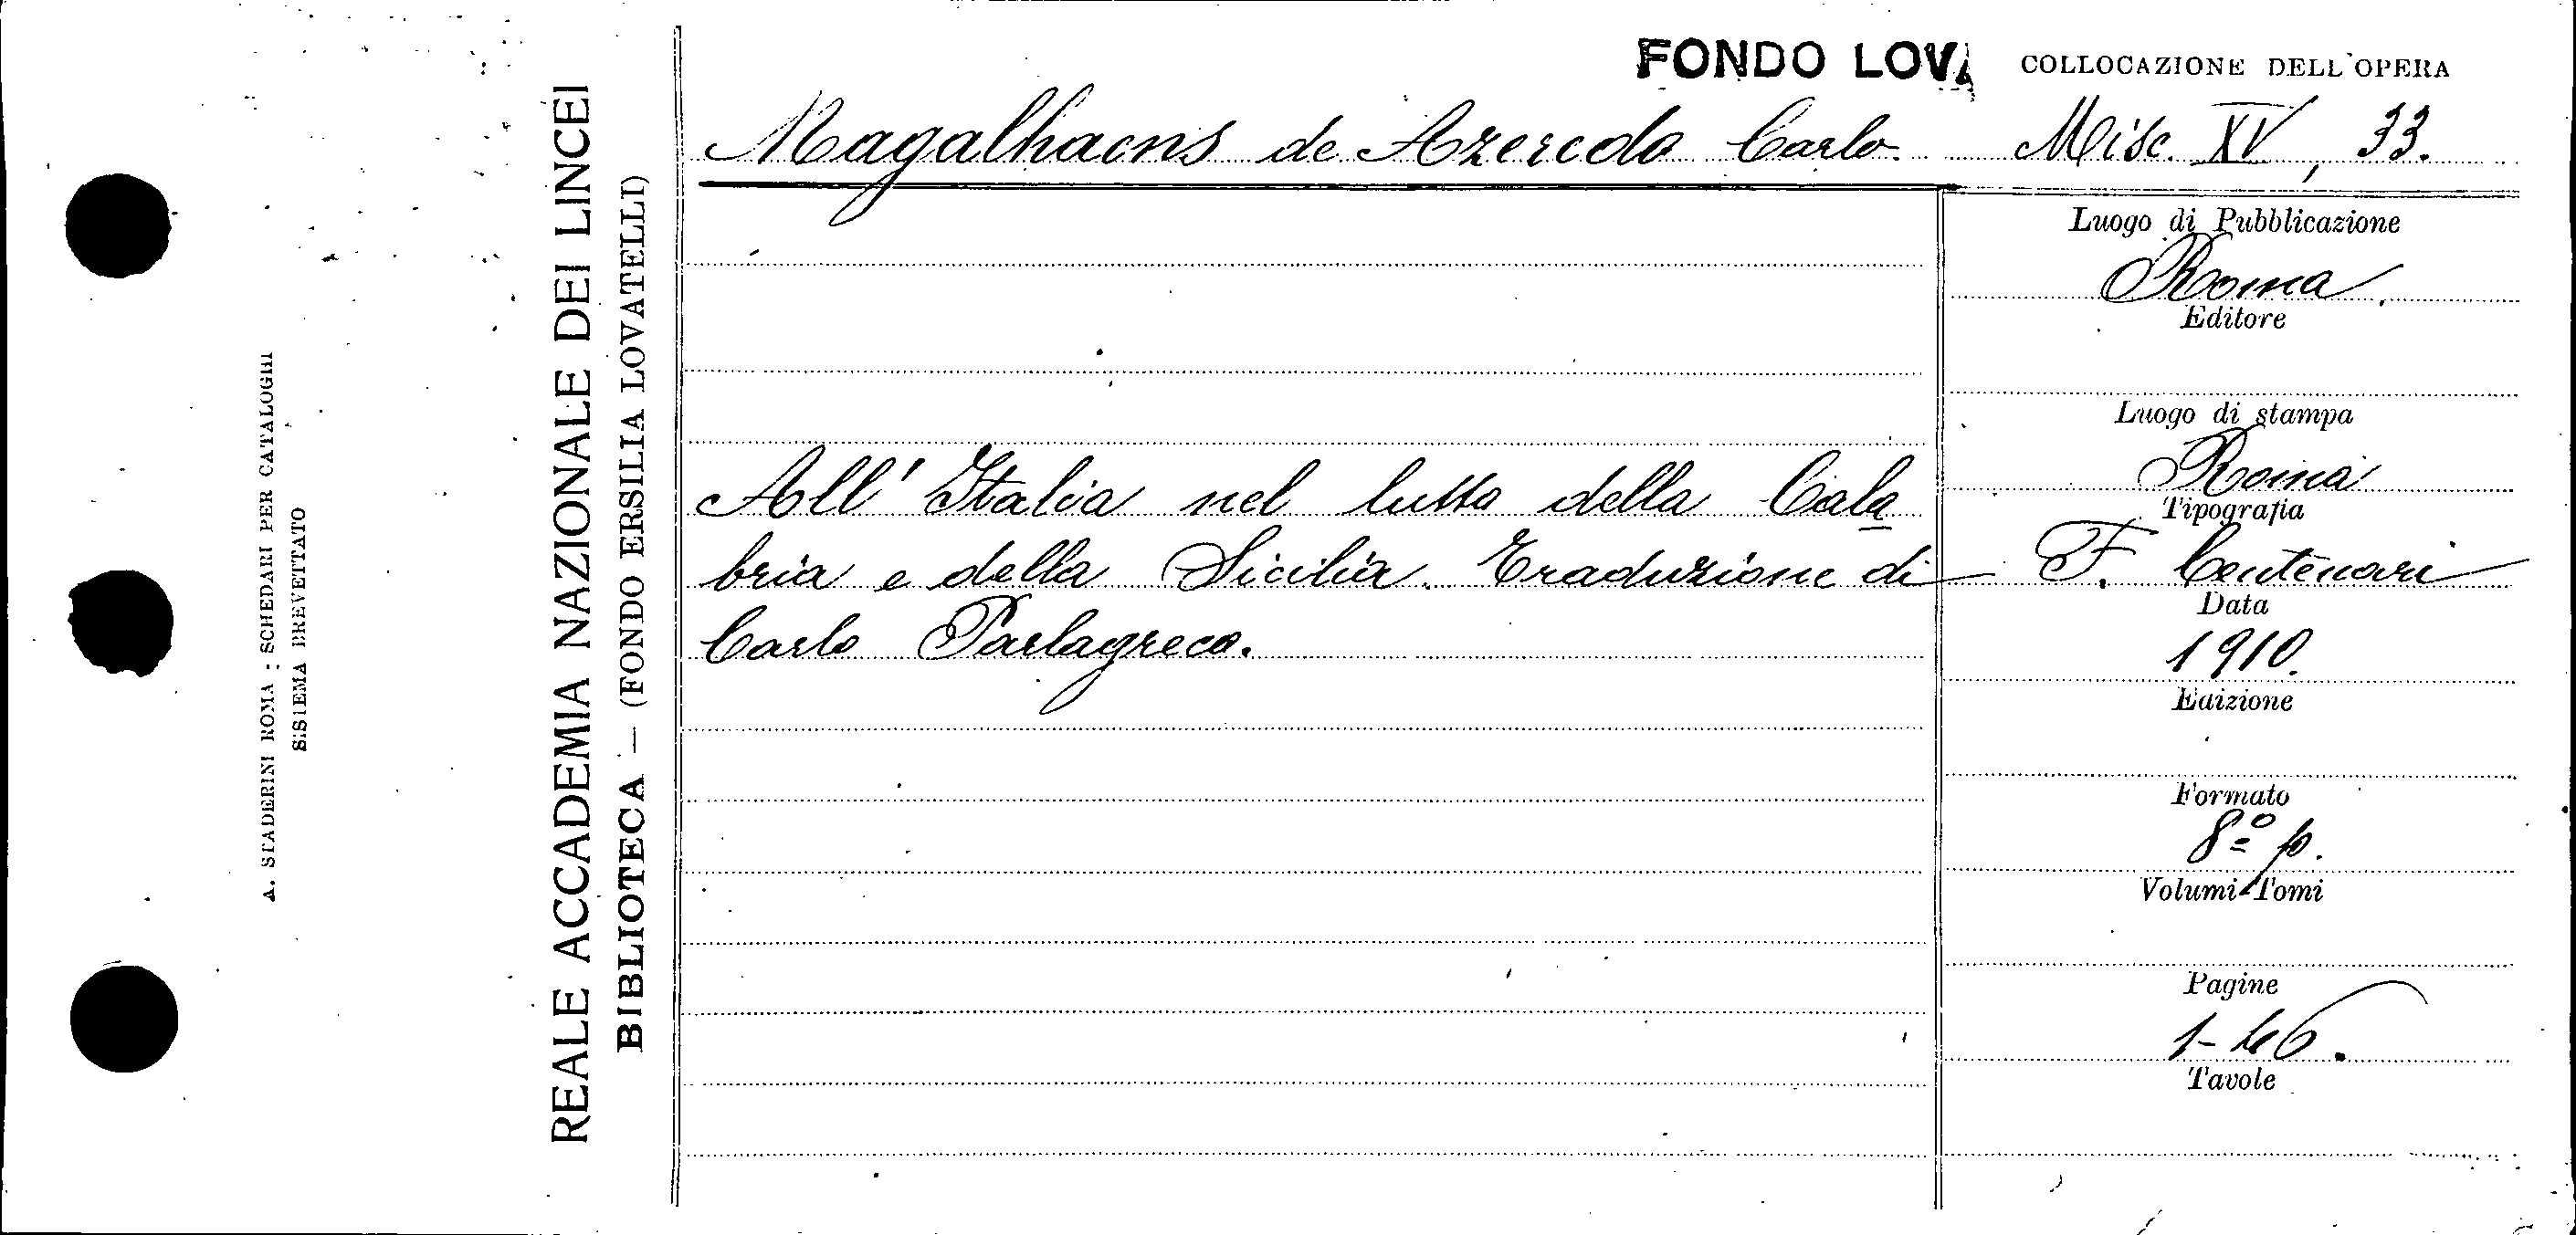 FONDO LOVA
COLLOCAZIONE DELL'OPERA
Magalhaens de Azeredo Carlo.
Misc. XV, 33.
All' Italia nel lutto della Cala
bria e della Sicilia. Traduzione di
Carlo Parlagreco.
Luogo di Pubblicazione
Roma.
Editore
Luogo di stampa
Roma
Tipografia
F. Centenari
Data
1910.
Edizione
Formato
8º p.
Volumi-Tomi
Pagine
1-46.
Tavole
REALE ACCADEMIA NAZIONALE DEI LINCEI
BIBLIOTECA — (FONDO ERSILIA LOVATELLI)
A. STADERINI ROMA : SCHEDARI PER CATALOGHI
SISTEMA BREVETTATO